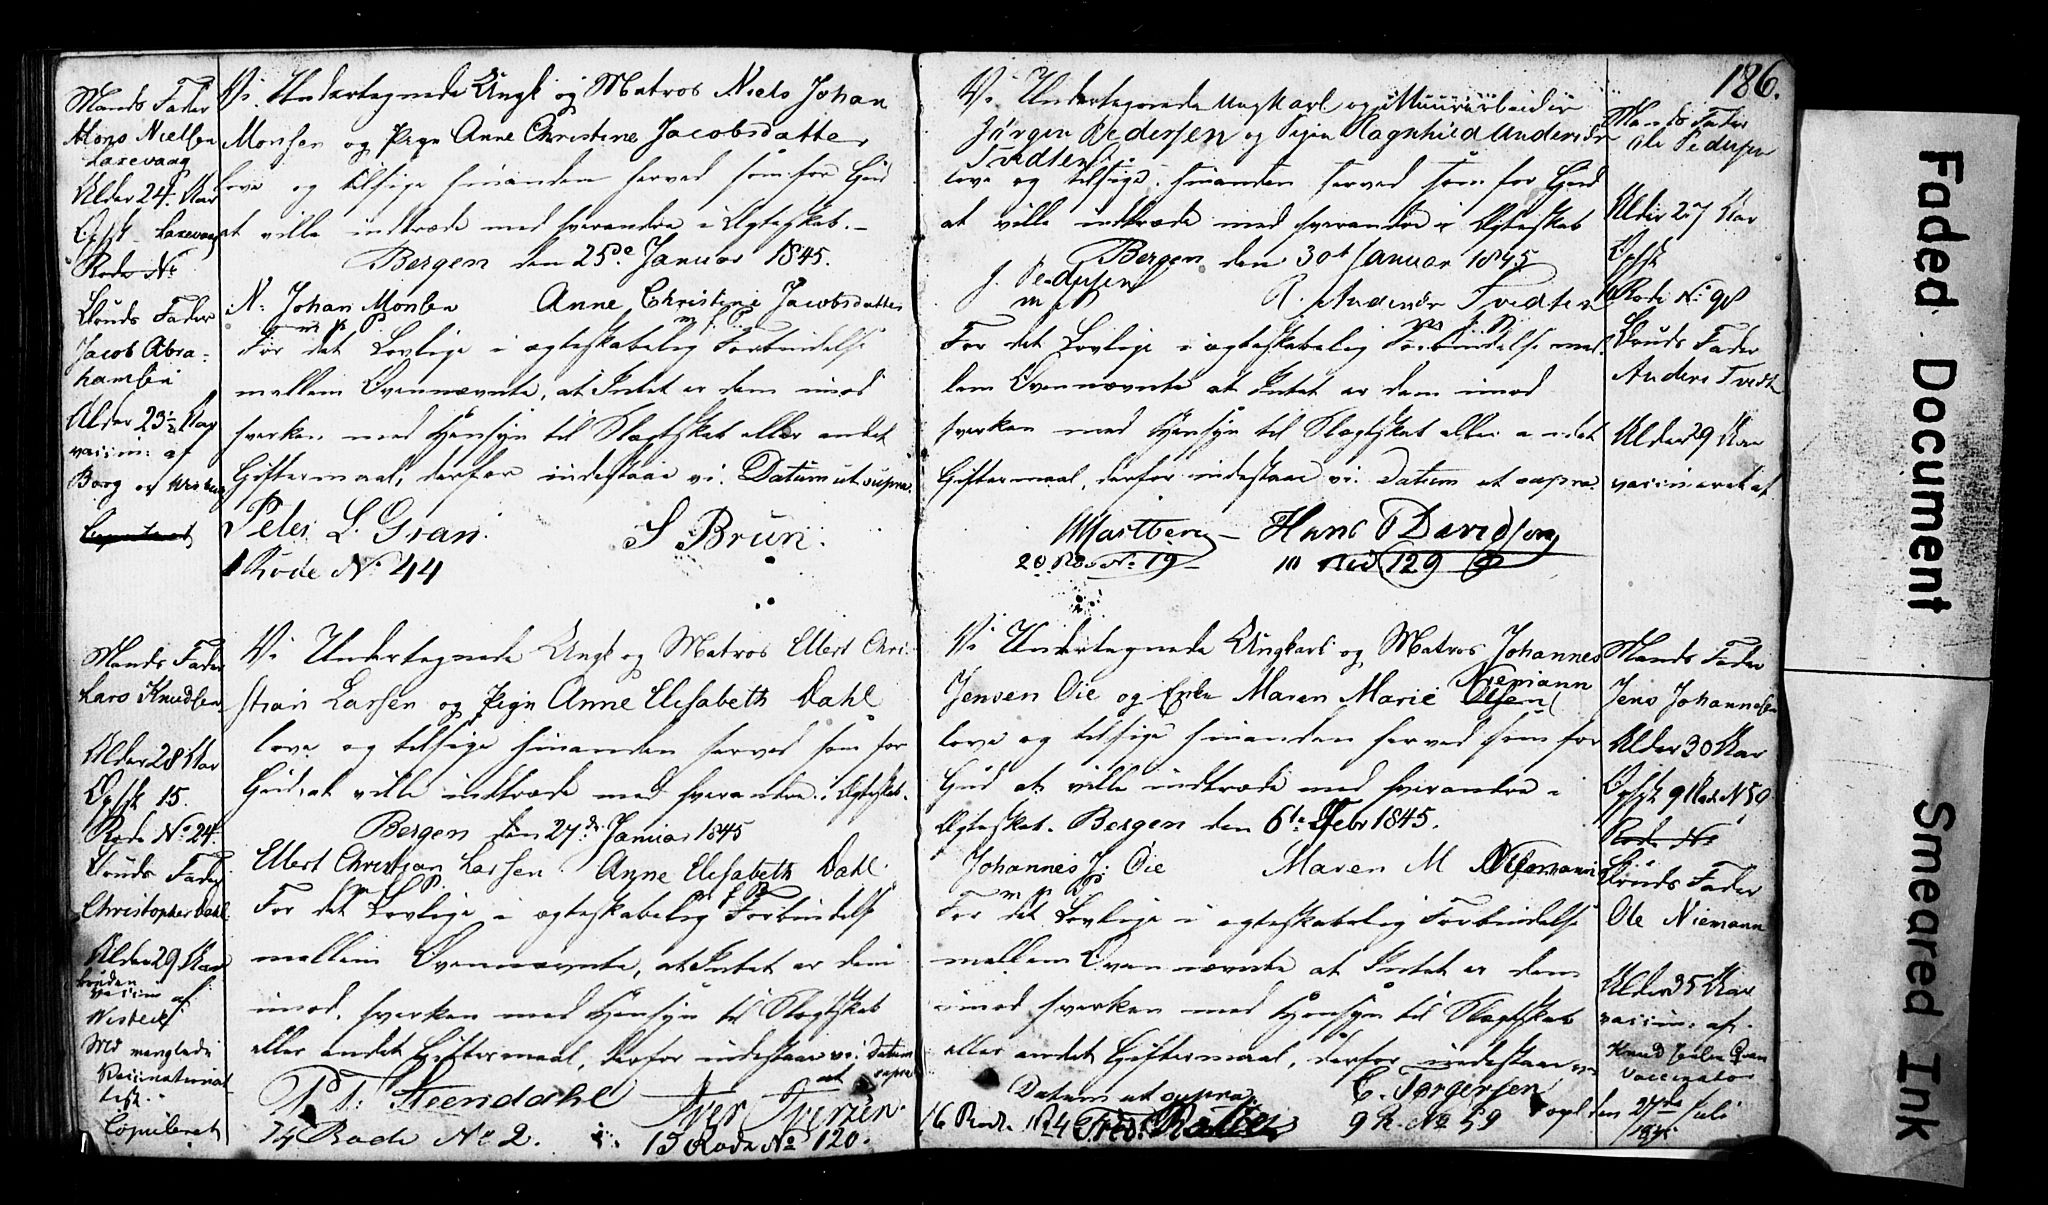 Mands Fader
Mons Nielsen
Laxevaag
Alder 24 Aar
Opsst. Laxevaag
Rode No
Bruds Fader
Jacob Abra-
hamsen
Alder 23½ Aar
vaccin: af
Borg og
Copuleret
Vi Undertegnede Ungk og Matros Niels Johan
Monsen og Pign Anne Christine Jacobsdatter
love og tilsige hinanden herved som for Gud
at ville indtræde med hverandre i Ægteskab.
Bergen den 25de Januar 1845.
N: Johan Monsen Anne Christine Jacobsdatter
m p P m f P
For det Lovlige i ægteskabelig Forbindelse
mellem Ovennævnte, at Intet er dem imod
hverken med Hensyn til Slægtskab eller andet
Giftermaal, derfor indestaae vi. Datum ut supra.
Peter L. Gran. S Brun.
1 Rode No 44
Mands Fader
Lars Knudsen
Alder 28 Aar
Opsst 15.
Rode No 24.
Bruds Fader
Christopher Dahl
Alder 29 Aar
Bruden
vaccin af
Wisteck
Md manglede
Vaccinations
attest.
Copuleret
Vi Undertegnede Ungk og Matros Ellert Chri-
stian Larsen og Pign Anne Elisabeth Dahl
love og tilsige hinanden herved som for
Gud, at ville indtræde med hverandre i Ægteskab.
Bergen den 27de Januar 1845
Ellert Christian Larsen Anne Elisabeth Dahl.
For det Lovlige i ægteskabelig Forbindelse
mellem Ovennævnte, at Intet er dem
imod, hverken med Hensyn til Slægtskab
eller andet Giftermaal, derfor indestaae vi. Datum
ut supra
P. T. Steendahl Iver Iversen.
14 Rode No 2. 15 Rode No 120.
186.
Vi Undertegnede Ungkarl og Muurarbeider
Jørgen Pedersen og Pigen Ragnhild Andersdr
Tvedten
love og tilsige hinanden herved som for Gud
at ville indtræde med hverandre i Ægteskab
Bergen den 30t Januar 1845
J. Pedersen
m p P R. Andersdr Tvedten
m f P
For det Lovlige i ægteskabelig Forbindelse mel-
lem Ovennævnte at Intet er dem imod
hverken med Hensyn til Slægtskab eller andet
Giftermaal, derfor indestaae vi. Datum ut supra.
Mastberg Hans P Davidsen
20 Rode No 19 10 Rod 129
Mands Fader
Ole Pedersen
Alder 27 Aar
Opsst
Rode No 98
Bruds Fader
Anders Tvedt
Alder 29 Aar
vaccineret af
Vi Undertegnede Ungkarl og Matros Johannes
Niemann
Jensen Øie og Enke Maren Marie Olsen
love og tilsige hinanden herved som for
Gud at ville indtræde med hverandre i
Ægteskab. Bergen den 6te Febr 1845.
Johannes J: Øie Maren M Niemann
m p P
For det Lovlige i ægteskabelig Forbindelse
mellem Ovennævnte at Intet er dem
imod hverken med Hensyn til Slægtskab
eller andet Giftermaal, derfor indestaae vi
Datum ut supra C. Torgersen
16 Rode No 4 Fred. 9 R. No 59
Mands Fader
Jens Johannesen
Alder 30 Aar
Opsst 9 Rode N 59
Rode No
Bruds Fader
Ole Niemann
Alder 35 Aar
vaccin: af
Knud
Vaccinator
Copl den 27de Juli
1845
Faded Document
Smeared Ink